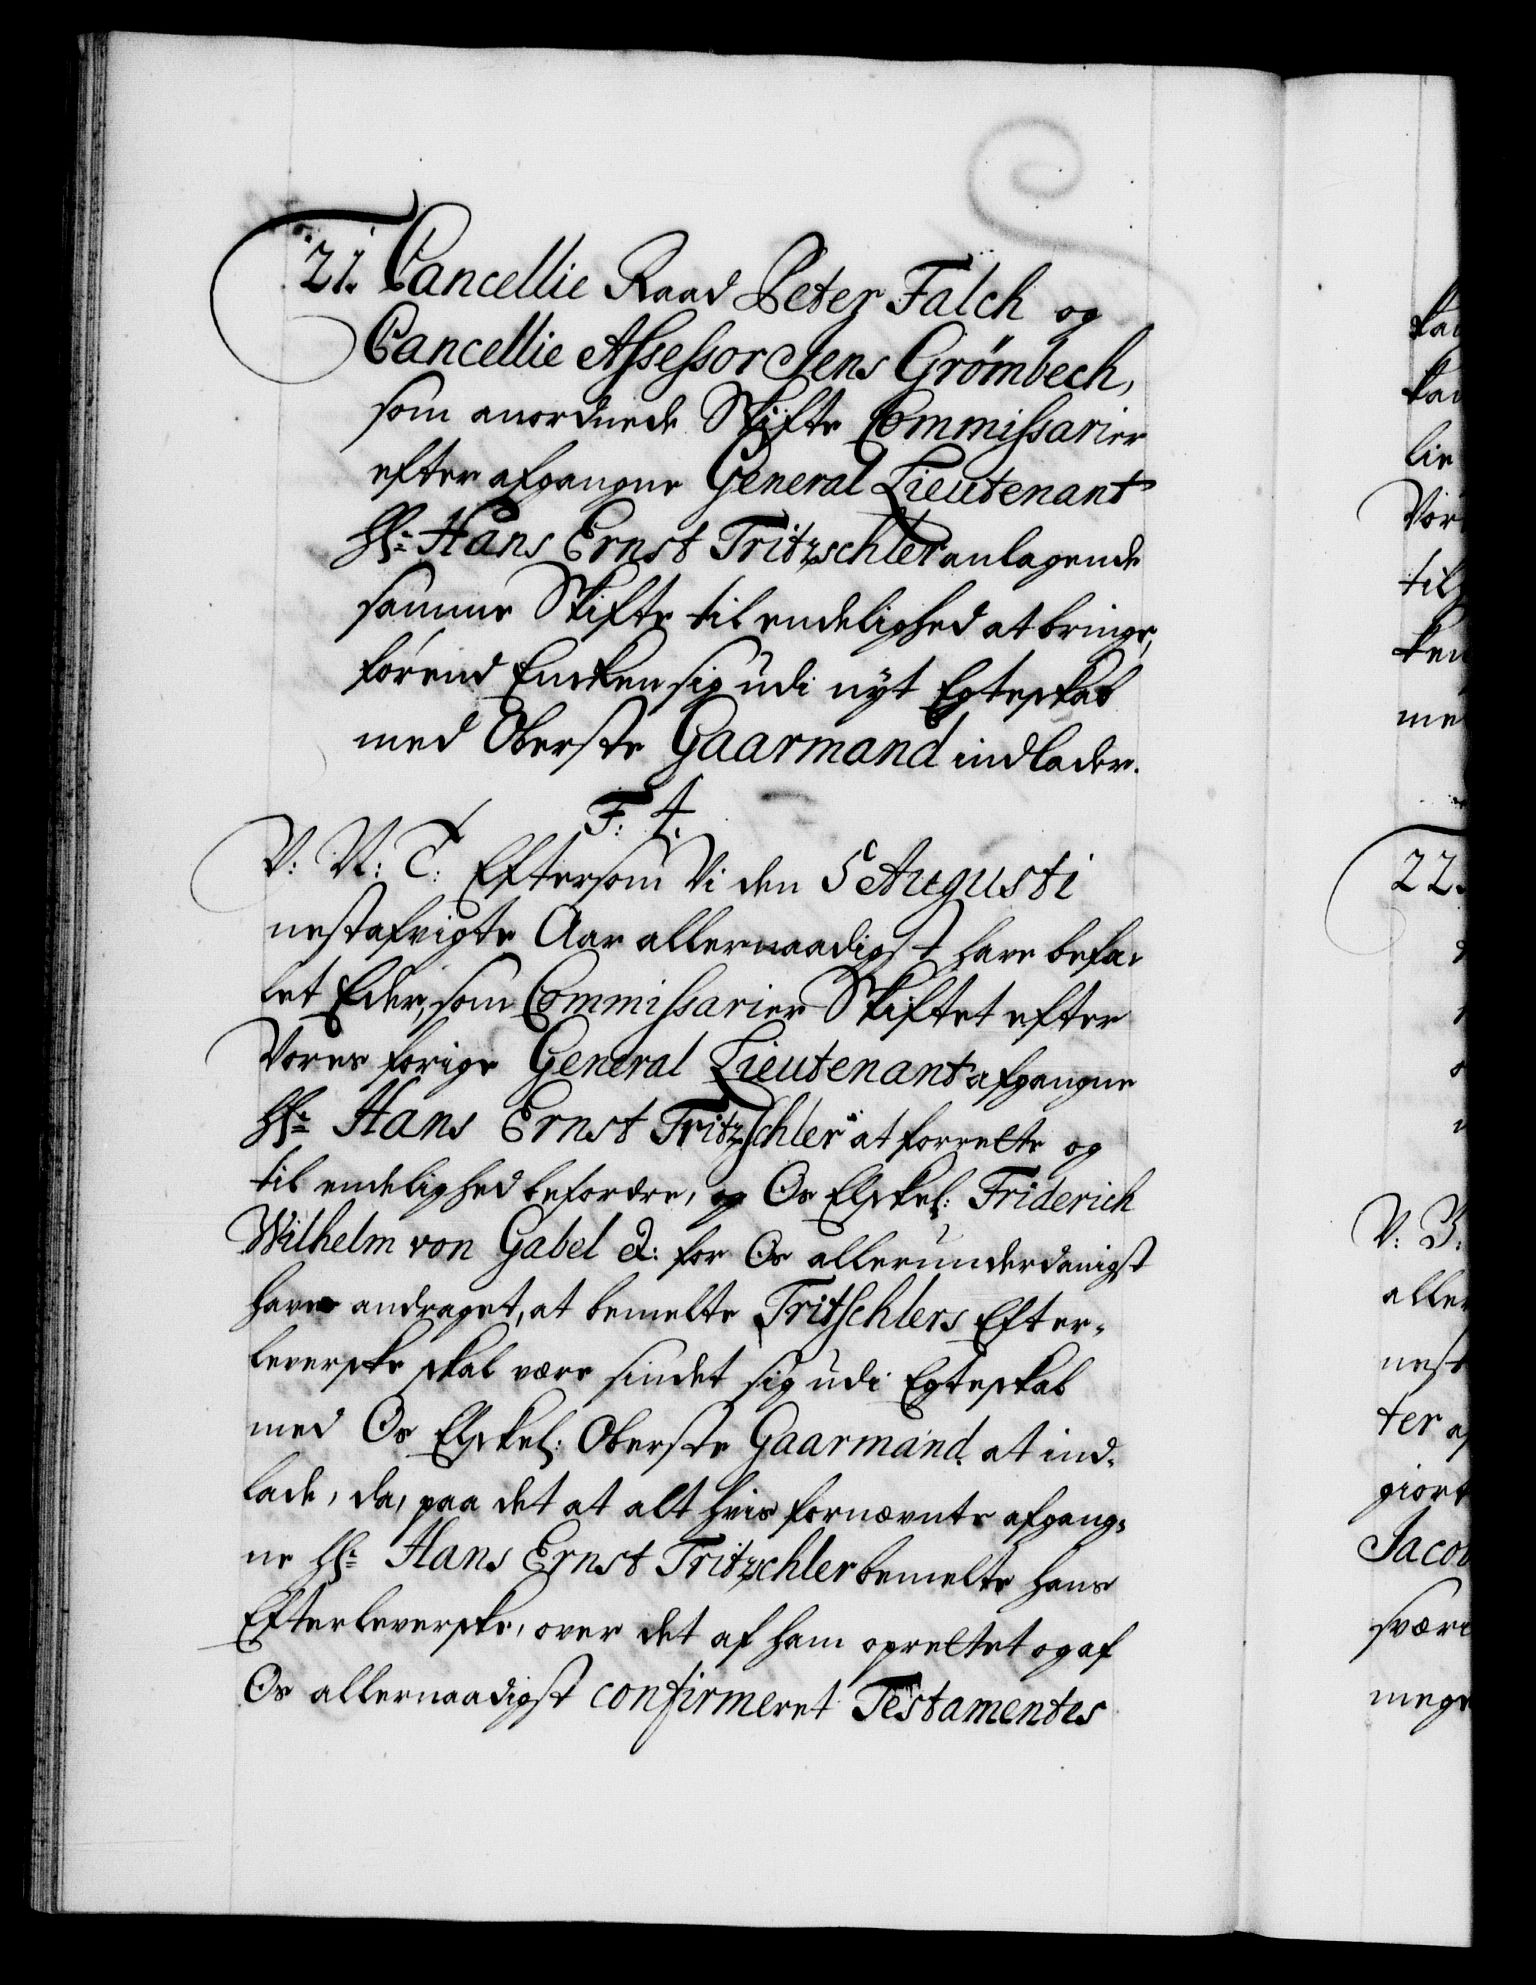 21. Cancellie Raad Peter Falch og
Cancellie Assessor Jens Grømbech,
som anordnede Skifte Commissarier
efter afgangne General Lieutenant
Hr: Hans Ernst Tritzschler anlagende
samme Skifte til endelighed at bringe,
förend Encken sig udi nyt Egteskab
med Oberste Gaarmand indlader.
F: 4.
V: V: T: Eftersom Vi den 5 Augusti
nestafvigte Aar allernaadigst have befa-
let Eder, som Commissarier Skiftet efter
Vores forige General Lieutenant afgangne
Hr: Hans Ernst Tritzschler at forrette og
til endelighed befordre, og Os Elskel: Friderich
Wilhelm von Gabel &: for Os allerunderdanigst
haver andraget, at bemelte Tritschlers Efter-
leverske skal være sindet sig udi Egteskab
med Os Elskel: Oberste Gaarmand at ind-
lade, da, paa det at alt hvis fornævnte afgang-
ne Hr: Hans Ernst Tritzschler bemelte hans
Efterleverske, over det af ham oprettet og af
Os allernaadigst confirmeret Testamentes
22.
V: B:
aller
nest
ter af
giort
Jacob
svære